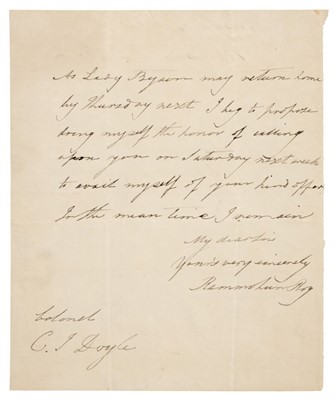 As Lady Byron may return home
by Thursday next I beg to propose
doing myself the honor of calling
upon you on Saturday next week
to avail myself of your kind offer
In the mean time I remain
My dear Sir
Yours very sincerely
Rammohun Roy
Colonel
C. J Doyle